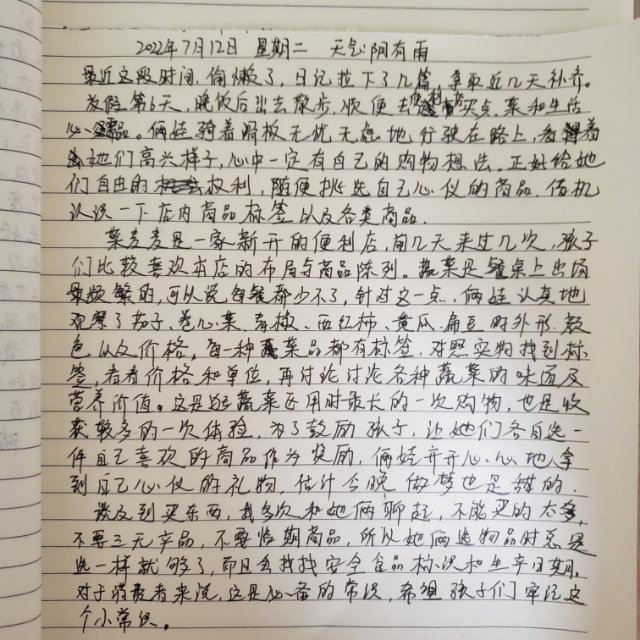 2022年7月12日 星期二 天气:阴有雨
最近这段时间,偷懒了,日记拉下了几篇,争取近几天补齐。
放假第6天,晚饭后出去散步,顺便去便利店买点菜和生活
必需品。俩娃骑着滑板无忧无虑地行驶在路上,看着
她们高兴样子,心中一定有自己的购物想法。正好给她
们自由的权利,随便挑选自己心仪的商品,借机
认识一下店内商品标签以及各类商品。
菜麦麦是一家新开的便利店,前几天来过几次,孩子
们比较喜欢本店的布局与商品陈列。蔬菜是餐桌上出场
最频繁的,可以说每餐都少不了,针对这一点,俩娃认真地
观察了茄子、卷心菜、青椒、西红柿、黄瓜、扁豆的外形、颜
色以及价格,每一种蔬菜品都有标签,对照实物找到标
签,看看价格和单位,再讨论讨论各种蔬菜的味道及
营养价值。这是蔬菜区用时最长的一次购物,也是收
获较多的一次体验,为了鼓励孩子,让她们各自选一
件自己喜欢的商品作为奖励,俩娃开开心心地拿
到自己心仪的礼物,估计今晚做梦也是甜的。
谈及到买东西,我多次和她俩聊起,不能买的太多,
不要三无产品,不要临期商品,所以她俩选物品时总是
选一样就够了,而且会找找安全食品标识和生产日期。
对于消费者来说,这是必备的常识,希望孩子们牢记这
个小常识。